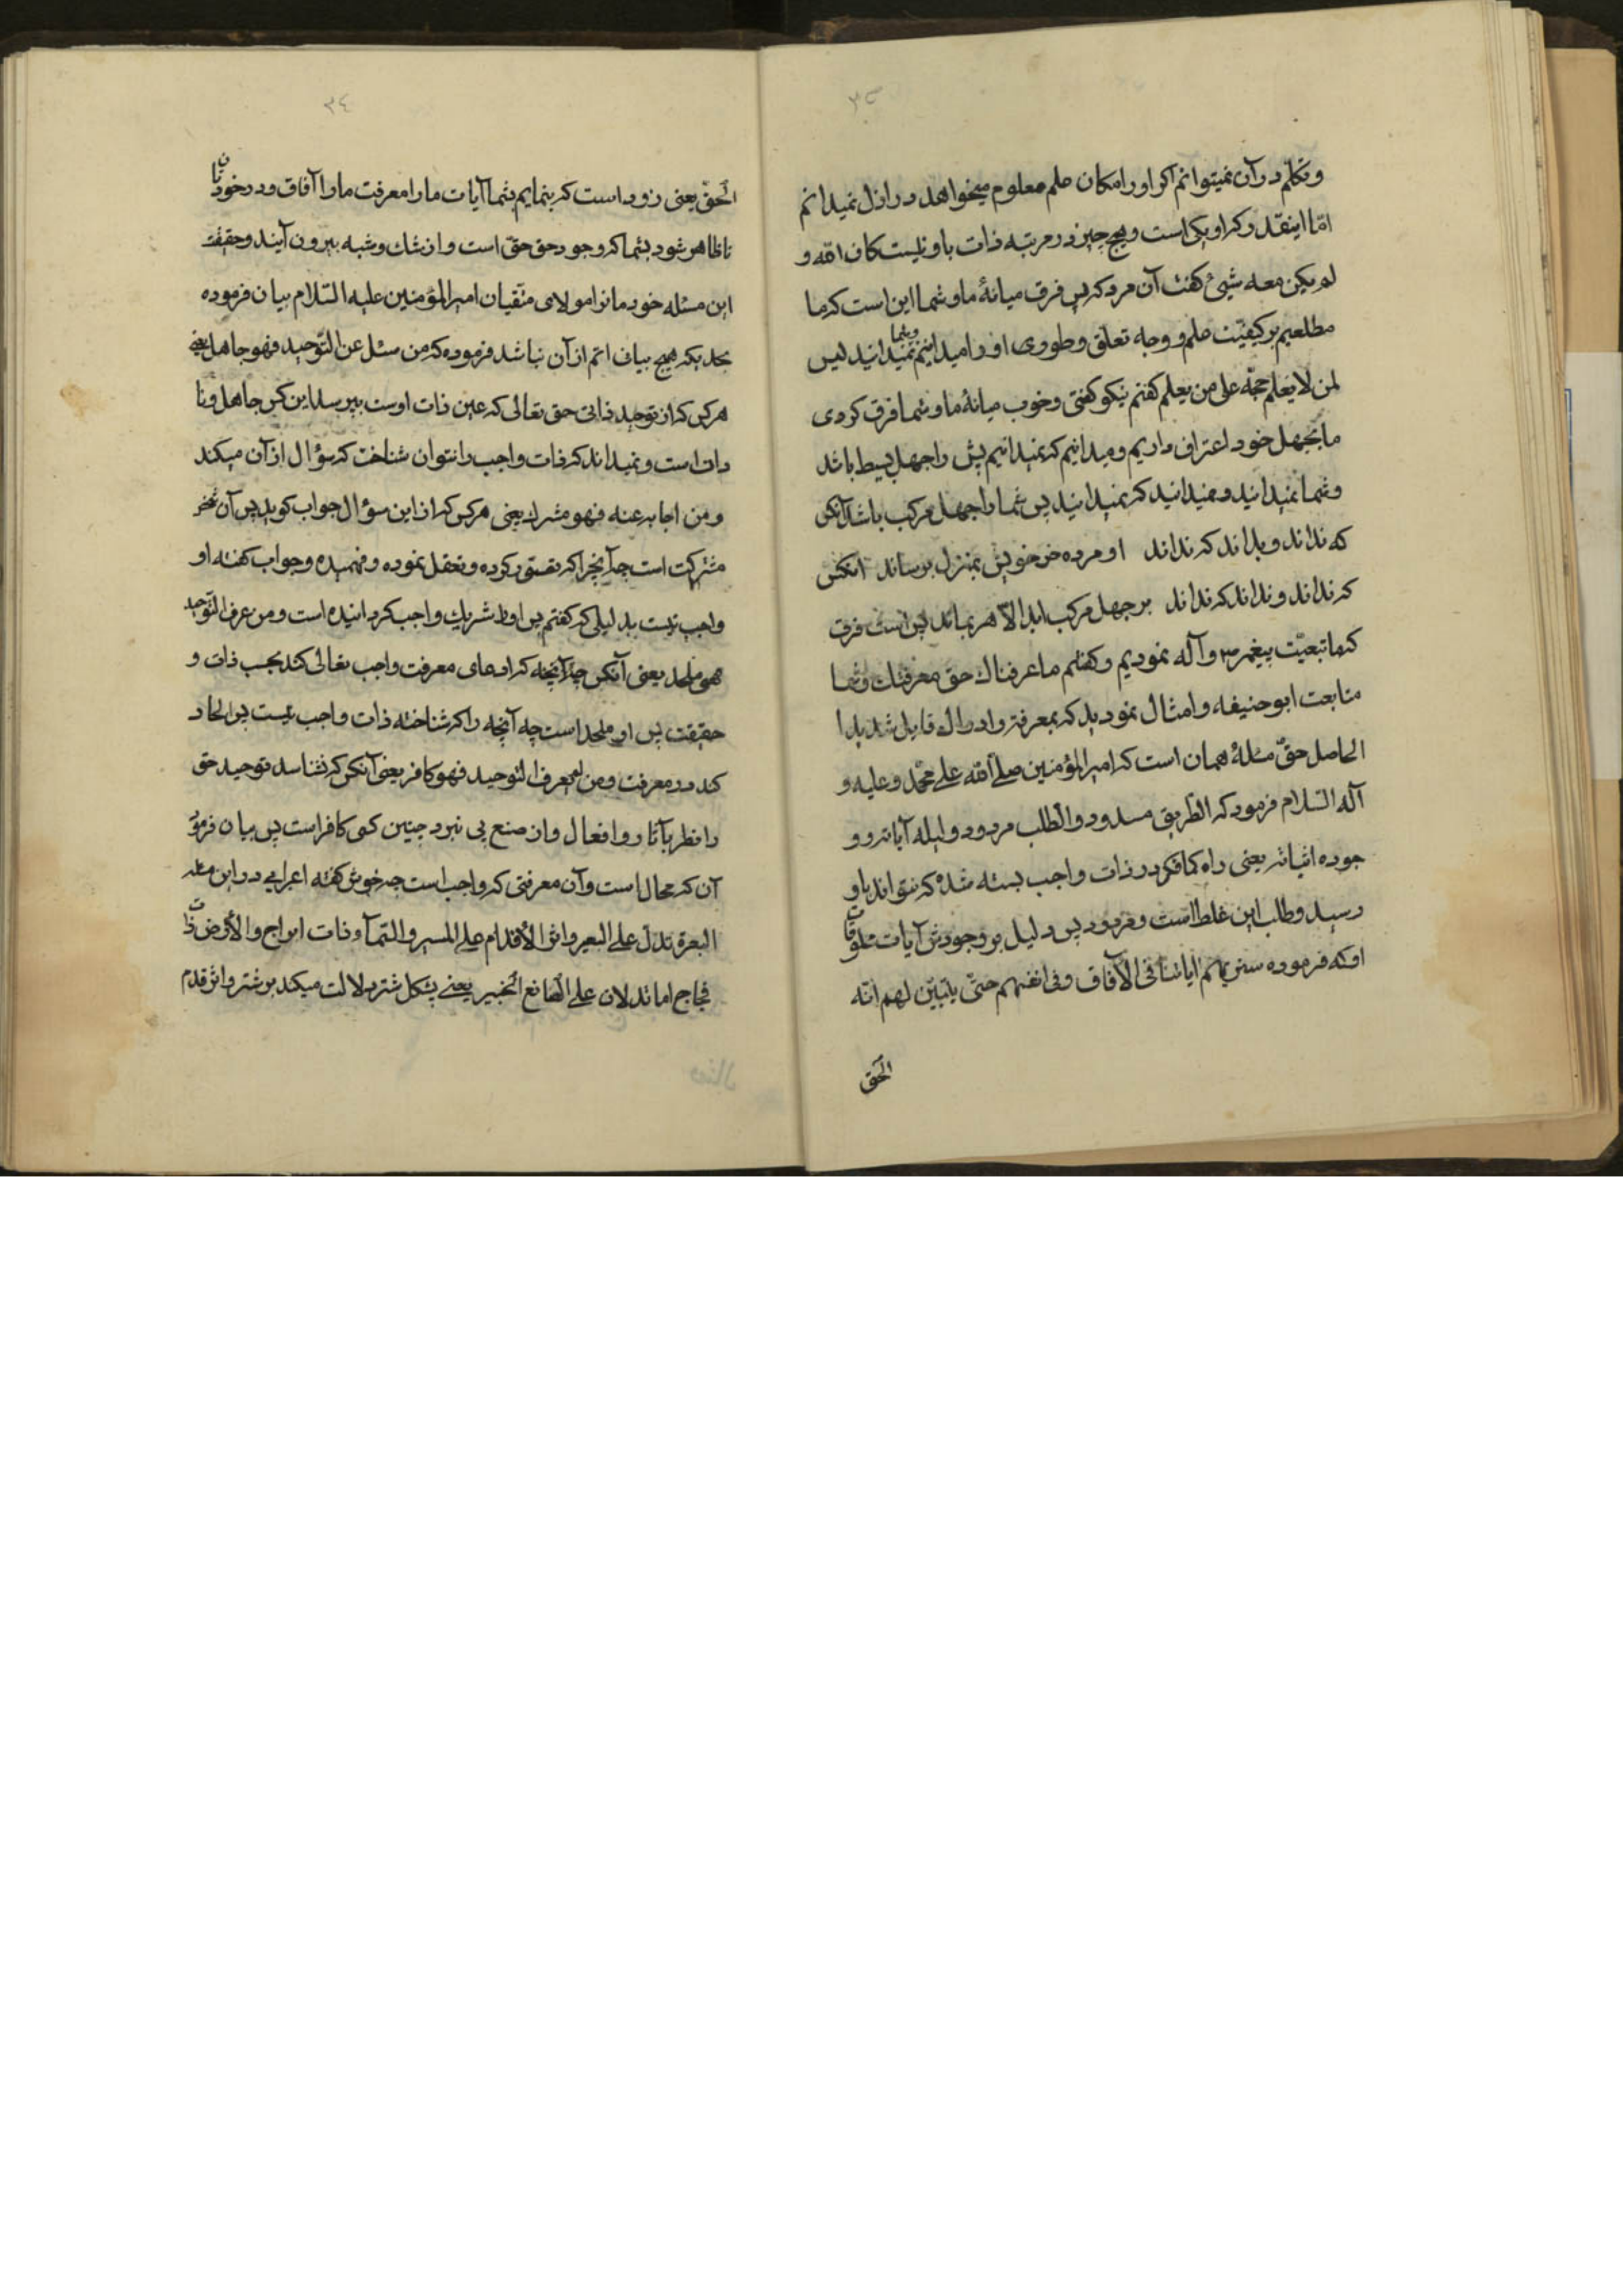 ۳۵
وتکلم در آن نمیتوانم اکر او را امکان علم معلوم میخواهد در ازل نمیدانم
امّا اینقدر که او یکی است و هیچ چیز در مرتبه ذات با او نیست کان الله و
لم یکن معه شیئ گفت آن مرد که پس فرق میانهٔ ما و شما این است که ما
مطلعیم بر کیفیّت علم و وجه تعلق و طوری او را میدانیم وشما نمیدانید لیس
لمن لا یعلم حجّة علی من یعلم کفتم نیکو کفتی وخوب میانهٔ ما و شما فرق کردی
ما بجهل خود اعتراف داریم و میدانیم که نمیدانیم پس را جهل بسیط باشد
و شما نمیدانید و نمیدانید که نمیدانید پس شما را جهل مرکب باشد آنکس
که نداند و بداند که نداند او مرده خر خویش بمنزل برساند آنکس
که نداند و نداند که نداند در جهل مرکب ابد الآهر بماند پس است فرق
که ما تبعیّت پیغمبر ص وآله نمودیم و کفتیم ما عرفناک حق معرفتک وشما
متابعت ابو حنیفه و امثال نمودید که بمعرفة و ادراک قایل شدید ا
الحاصل حقّ مسئلهٔ همان است که امیر المؤمنین صلی الله علی محمّد وعلیه و
آله السّلام فرمود که الطّریق مسدود والطّلب مردود و دلیله آیاته و و
جوده اثباته یعنی راه کما فکر در ذات واجب بسته شده که نتواند باو
رسید وطلب این غلط است وفرمود پس دلیل بر وجودش آیات مخلوقات
اوکه فرموده سنریهم آیاتنا فی الآفاق وفی انفسهم حتّی یتبیّن لهم انّه
الحقّ
۳٤
الحقّ یعنی زود است که بنمایم بشما آیات ما را معرفت ما را آفاق و در خودتان
تا ظاهر شود بشما که وجود حق حقّ است و از شک وشبه بیرون آیند وحقیقت
این مسئله خود مانرا مولای متّقیان امیر المؤمنین علیه السّلام بیان فرموده
بحدیکه هیچ بیان اتم از آن نباشد فرموده که من سئل عن التّوحید فهو جاهل یعنی
هر کس که از توحید ذاتی حق تعالی که عین ذات اوست بپرسد این کس جاهل و نا
دان است و نمیداند که ذات واجب را نتوان شناخت که سؤال از آن میکند
ومن اجاب عنه فهو مشرک یعنی هر کس که از این سؤال جواب کوید پس آن
مشرکست است چه آنچرا که تصوّر کرده و تعقل نموده و فهمیده و جواب گفته او
واجب نیست بدلیلی که کفتم پس او را شریک واجب کردانیده است و من عرف التّوحید
فهو ملحد یعنی آنکس چه آنچه که ادعای معرفت واجب تعالی کند بحسب ذات و
حقیقت پس او ملحد است چه آنچه را که شناخته ذات واجب نیست پس الحاد
کند در معرفت ومن لم یعرف التوحید فهو کافر یعنی آنکس که نشناسد توحید حق
را نظر بآثار و افعال و از صنع پی نبرد چنین کسی کافر است پس بیان فرمود
آن که محال است وآن معرفتی که واجب است چه خوش کفته اعرابی در این معنی
البعرة تدلّ علی البعیر واثر الأقدام علی المسیر والسّمآء ذات ابراج والأرض ذات
فجاج اما تدلان علی الصانع الخبیر یعنی پشکل شتر دلالت میکند بر شتر واثر قدم